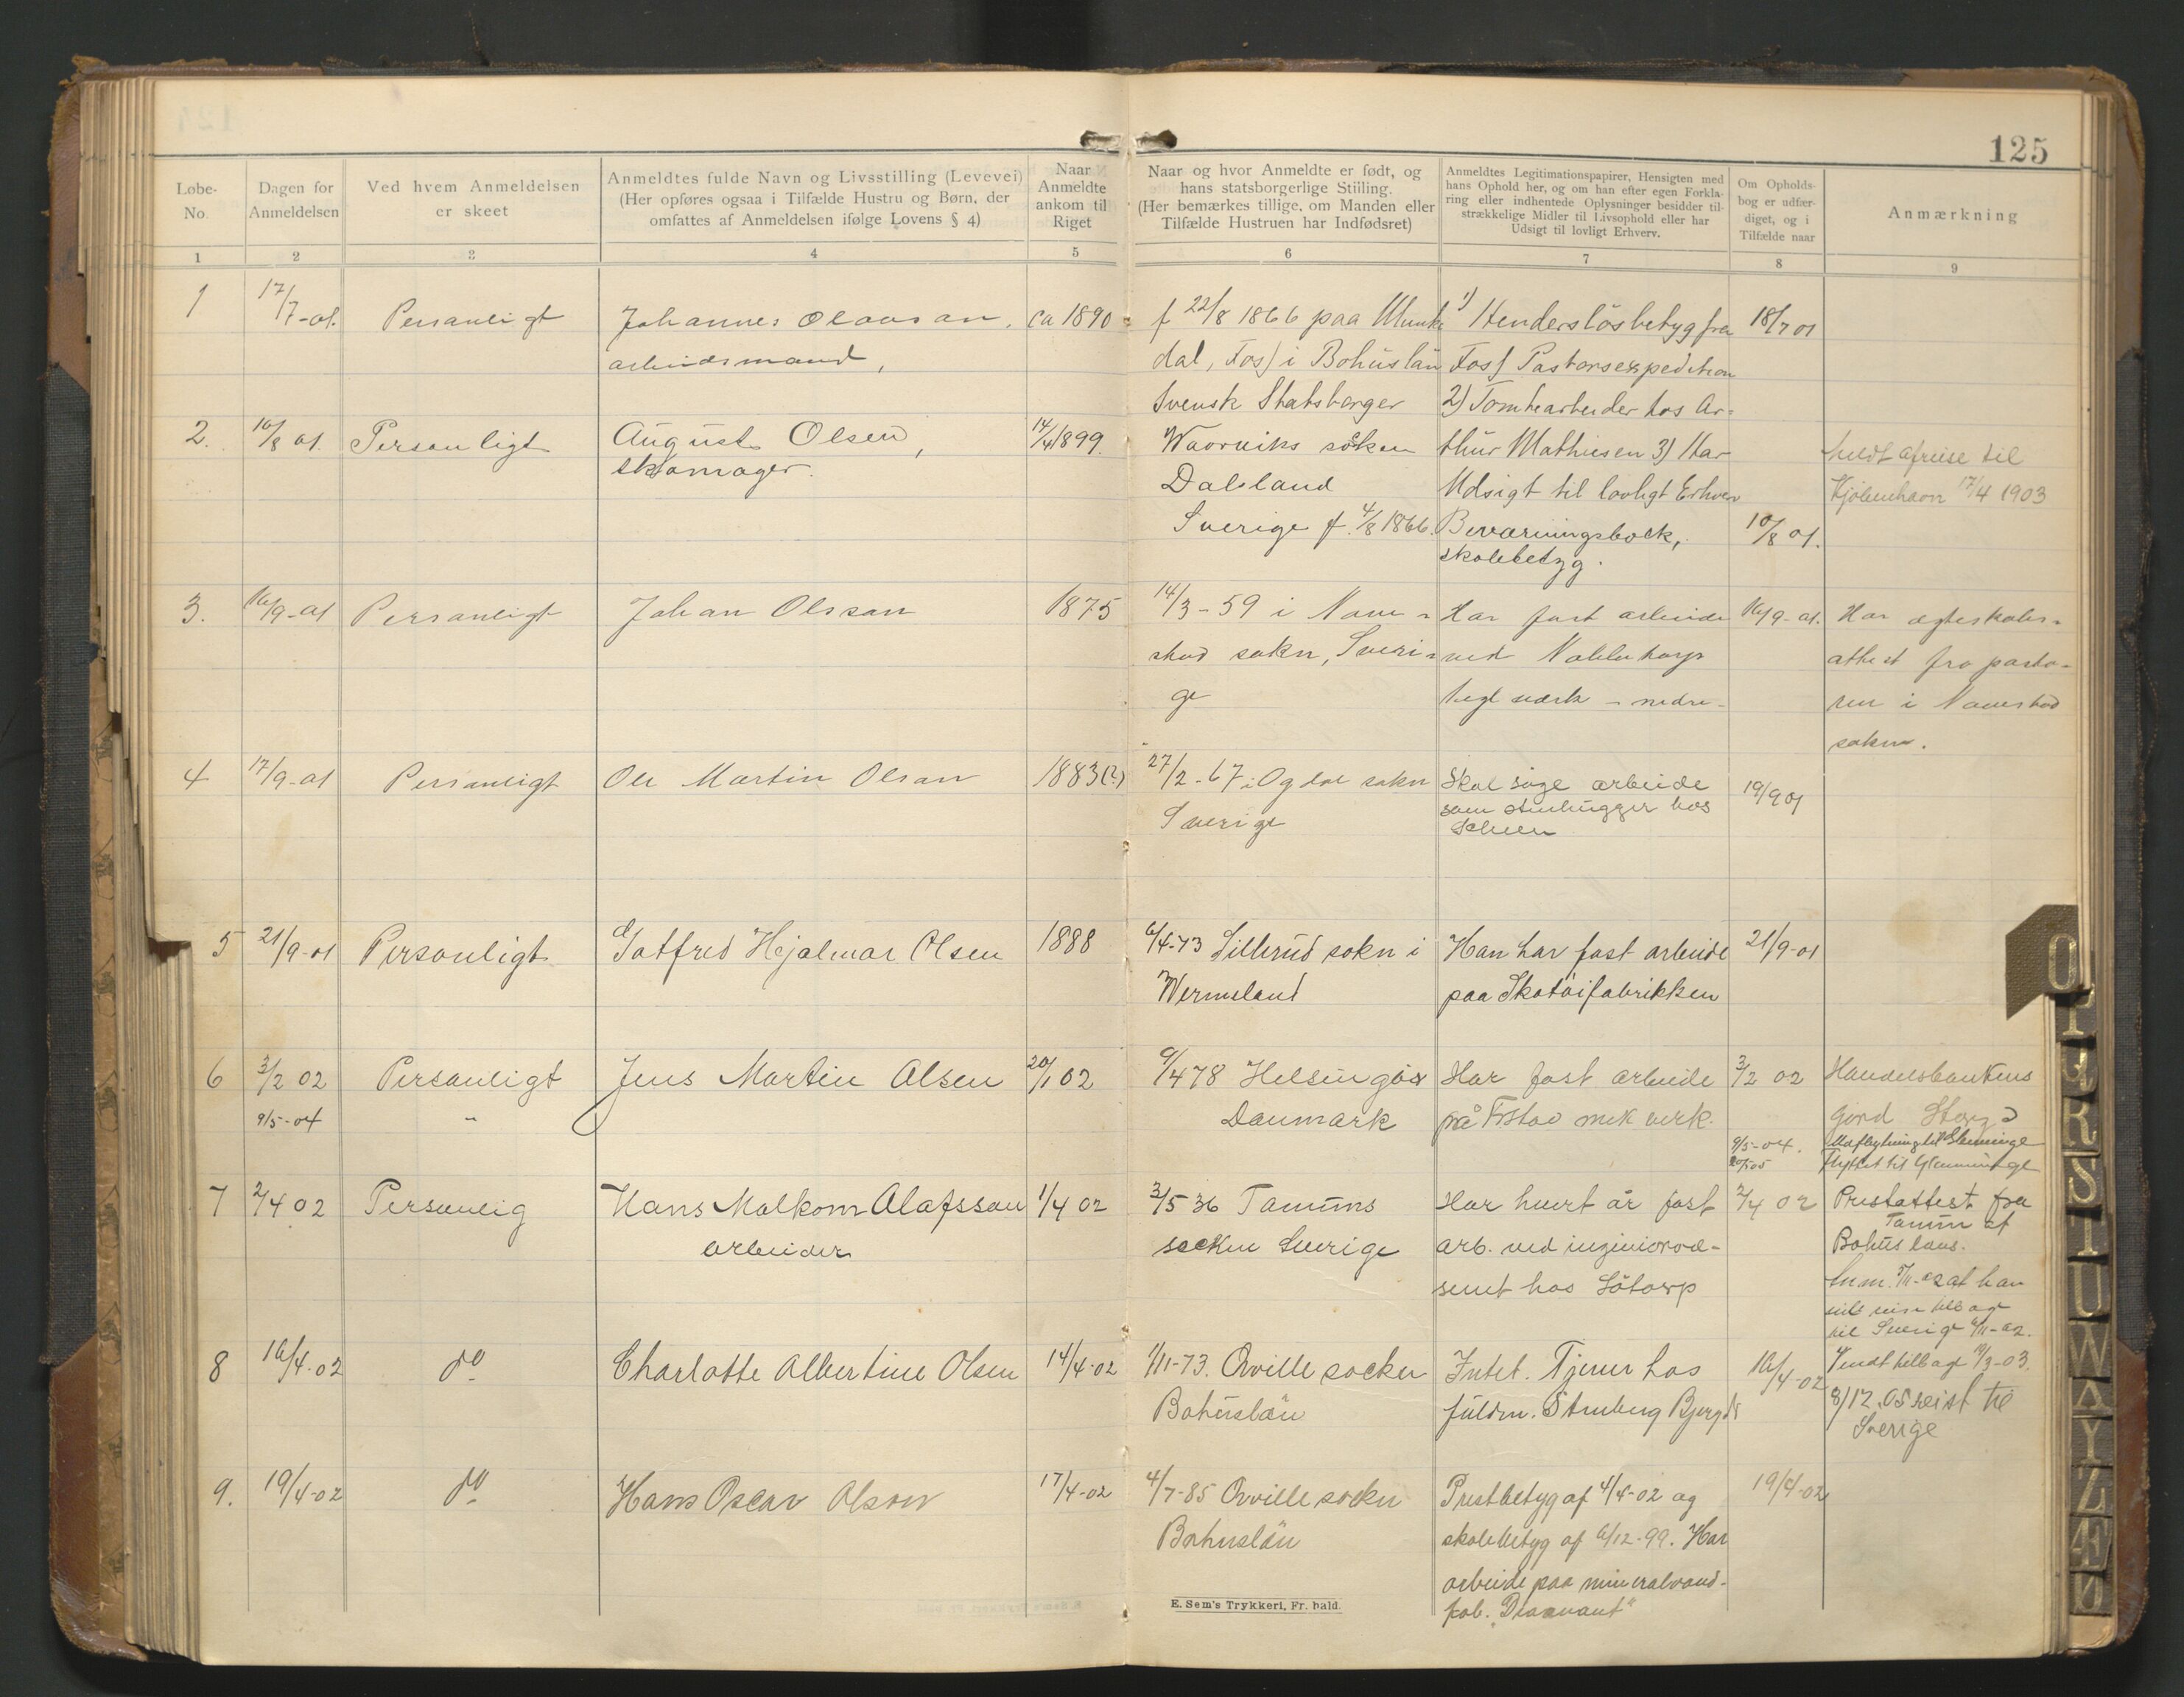 125
Løbe-
No.
Dagen for
Anmeldelsen
Ved hvem Anmeldelsen
er skeet
Anmeldtes fulde Navn og Livsstilling (Levevei)
(Her opføres ogsaa i Tilfælde Hustru og Børn, der
omfattes af Anmeldelsen ifølge Lovens § 4)
Naar
Anmeldte
ankom til
Riget
Naar og hvor Anmeldte er født, og
hans statsborgerlige Stiiling.
(Her bemærkes tillige, om Manden eller
Tilfælde Hustruen har Indfødsret)
Anmeldtes Legitimationspapirer, Hensigten med
hans Ophold her, og om han efter egen Forkla-
ring eller indhentede Oplysninger besidder til-
strækkelige Midler til Livsophold eller har
Udsigt til lovligt Erhverv.
Om Opholds-
bog er udfær-
diget, og i
Tilfælde naar
Anmærkning
1 2 3 4 5 6 7 8 9
1 17/7-01. Personligt Johannes Olausson, ca 1890
arbeidsmand,
f 22/8 1866 paa Munke
dal, Foss i Bohuslän
Svensk Statsborger
1) Hinderslösbetyg fra
Foss Pastorsexpedition
2) Tomtearbeider hos Ar-
thur Mathiesen 3) Har
Udsigt til lovligt Erhverv
18/7 01
2. 10/8 01. Personligt August Olsen, 14/4 1899.
skomager.
Waarviks socken
Dalsland
Sverige f. 4/8 1866.
Beværningsbock,
skolebetyg.
10/8 01.
Meldt afreise til
Kjöbenhavn 17/4 1903
3. 16/9-01 Personligt Johan Olsson 1875
14/3-59 i Nave-
stad sokn, Sveri-
ge
Har fast arbeide
ved Nabbetorp
teglverk - nedre-
16/9-01.
Har ægteskabs-
attest fra pasto-
ren i Navestad
sokn.
4 17/9-01 Personligt Ole Martin Olsen 1883(?)
27/2-67 i Ogdal sokn
Sverige
Skal söge arbeide
som stenhugger hos
Scheen
19/9 01
5 21/9-01 Personligt Gotfred Hjalmar Olsen 1888
6/4-73 Sillerud sokn i
Wermeland
Han har fast arbeide
paa Skotöifabrikken
21/9-01
6 3/2 02 Personligt Jens Martin Olsen 20/1 02
9/5-04 "
9/4 78 Helsingör
Danmark
Har fast arbeide
på Frstad mek verk.
3/2 02
9/5-04.
Handelsbankens
Gård Storg
Udflytning til Glemminge
flyttet til Glemminge
7 2/4 02 Personlig Hans Malkom Olafsson 1/4 02
arbeider
3/5 36 Tanums
socken Sverige
Har hvert år fast
arb. ved ingeniörvæ-
senet hos Sötorp
2/4 02
Prestattest fra
Tanum af
Bohus läns.
Anm. 5/11-02 at han
vil reise tilbage
til Sverige 6/11-02.
8 16/4-02 do Charlotte Albertine Olsen 14/4-02
1/11-73. Qville socken
Bohuslän
Intet. Tjener hos
fuldm. Stenberg Bjergd
16/4-02
Vendt tilbage 10/3-03.
8/12.05 reist til
Sverige
9. 19/4-02 do Hans Oscar Olson 17/4-02
4/7-85 Qville socken
Bohuslän
Prestbetyg af 4/4-02 og
skolebetyg af 6/12-99. Har
arbeide paa mineralvand-
fab. "Diamant"
19/4-02
E. Sem's Trykkeri, Fr. hald.
O
P
R
S
T
U
W
Y
Z
Æ
Ø